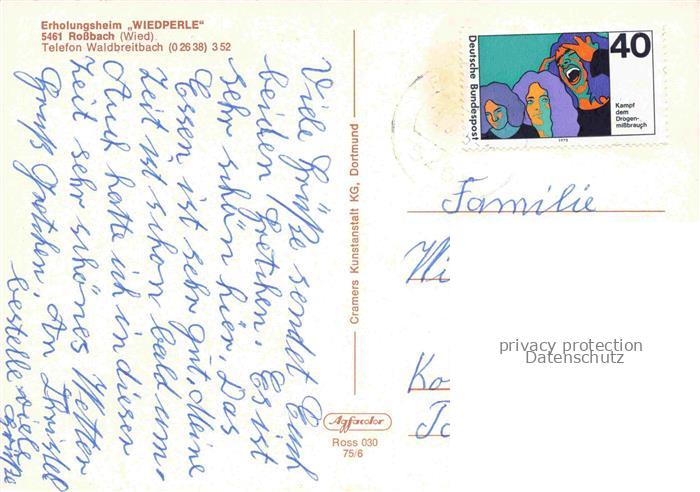 Erholungsheim „WIEDPERLE"
5461 Roßbach (Wied)
Telefon Waldbreitbach (0 26 38) 3 52
Viele Grüße sendet Euch
beiden Gretchen. Es ist
sehr schön hier. Das
Essen ist sehr gut. Meine
Zeit ist schon bald um.
Auch hatte ich in dieser
Zeit sehr schönes Wetter
Gruß Gretchen, An Christel
bestelle viele
Grüße
Cramers Kunstanstalt KG, Dortmund
Agfacolor
Ross 030
75/6
Deutsche Bundespost
40
Kampf
dem
Drogen-
mißbrauch
1975
Familie
Wi
Ko
privacy protection
Datenschutz